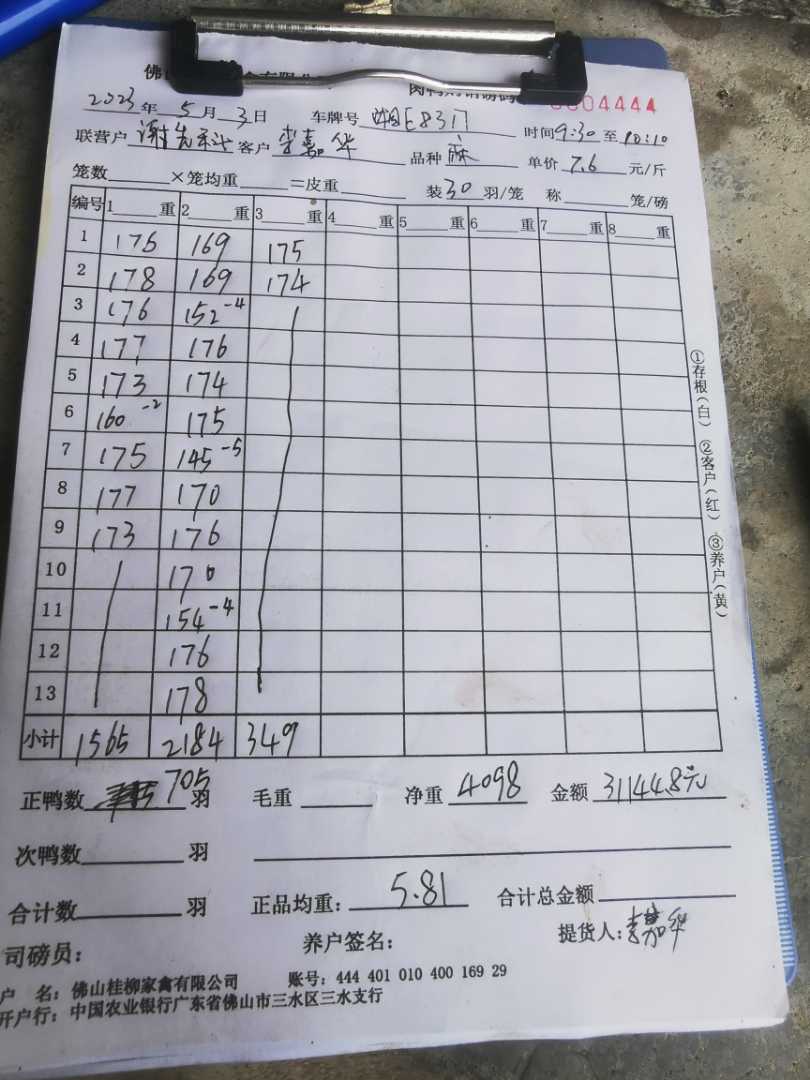 佛山 禽有限公
肉鸭 0004444
2023年5月3日 车牌号 E8317 时间9:30至10:10
联营户 谢先 客户 李嘉华 品种 麻 单价 7.6 元/斤
笼数 ×笼均重 =皮重 装30羽/笼 称 笼/磅
编号 1 重 2 重 3 重 4 重 5 重 6 重 7 重 8 重
1 175 169 175
2 178 169 174
3 176 152-4
4 177 176
5 173 174
6 160-2 175
7 175 145-5
8 177 170
9 173 176
10 170
11 154-4
12 176
13 178
小计 1565 2184 349
正鸭数 705 羽 毛重 净重 4098 金额 31144.8元
次鸭数 羽
合计数 羽 正品均重: 5.81 合计总金额
司磅员: 养户签名: 提货人:李嘉华
户 名: 佛山桂柳家禽有限公司 账号: 444 401 010 400 169 29
开户行: 中国农业银行广东省佛山市三水区三水支行
①存根(白) ②客户(红) ③养户(黄)